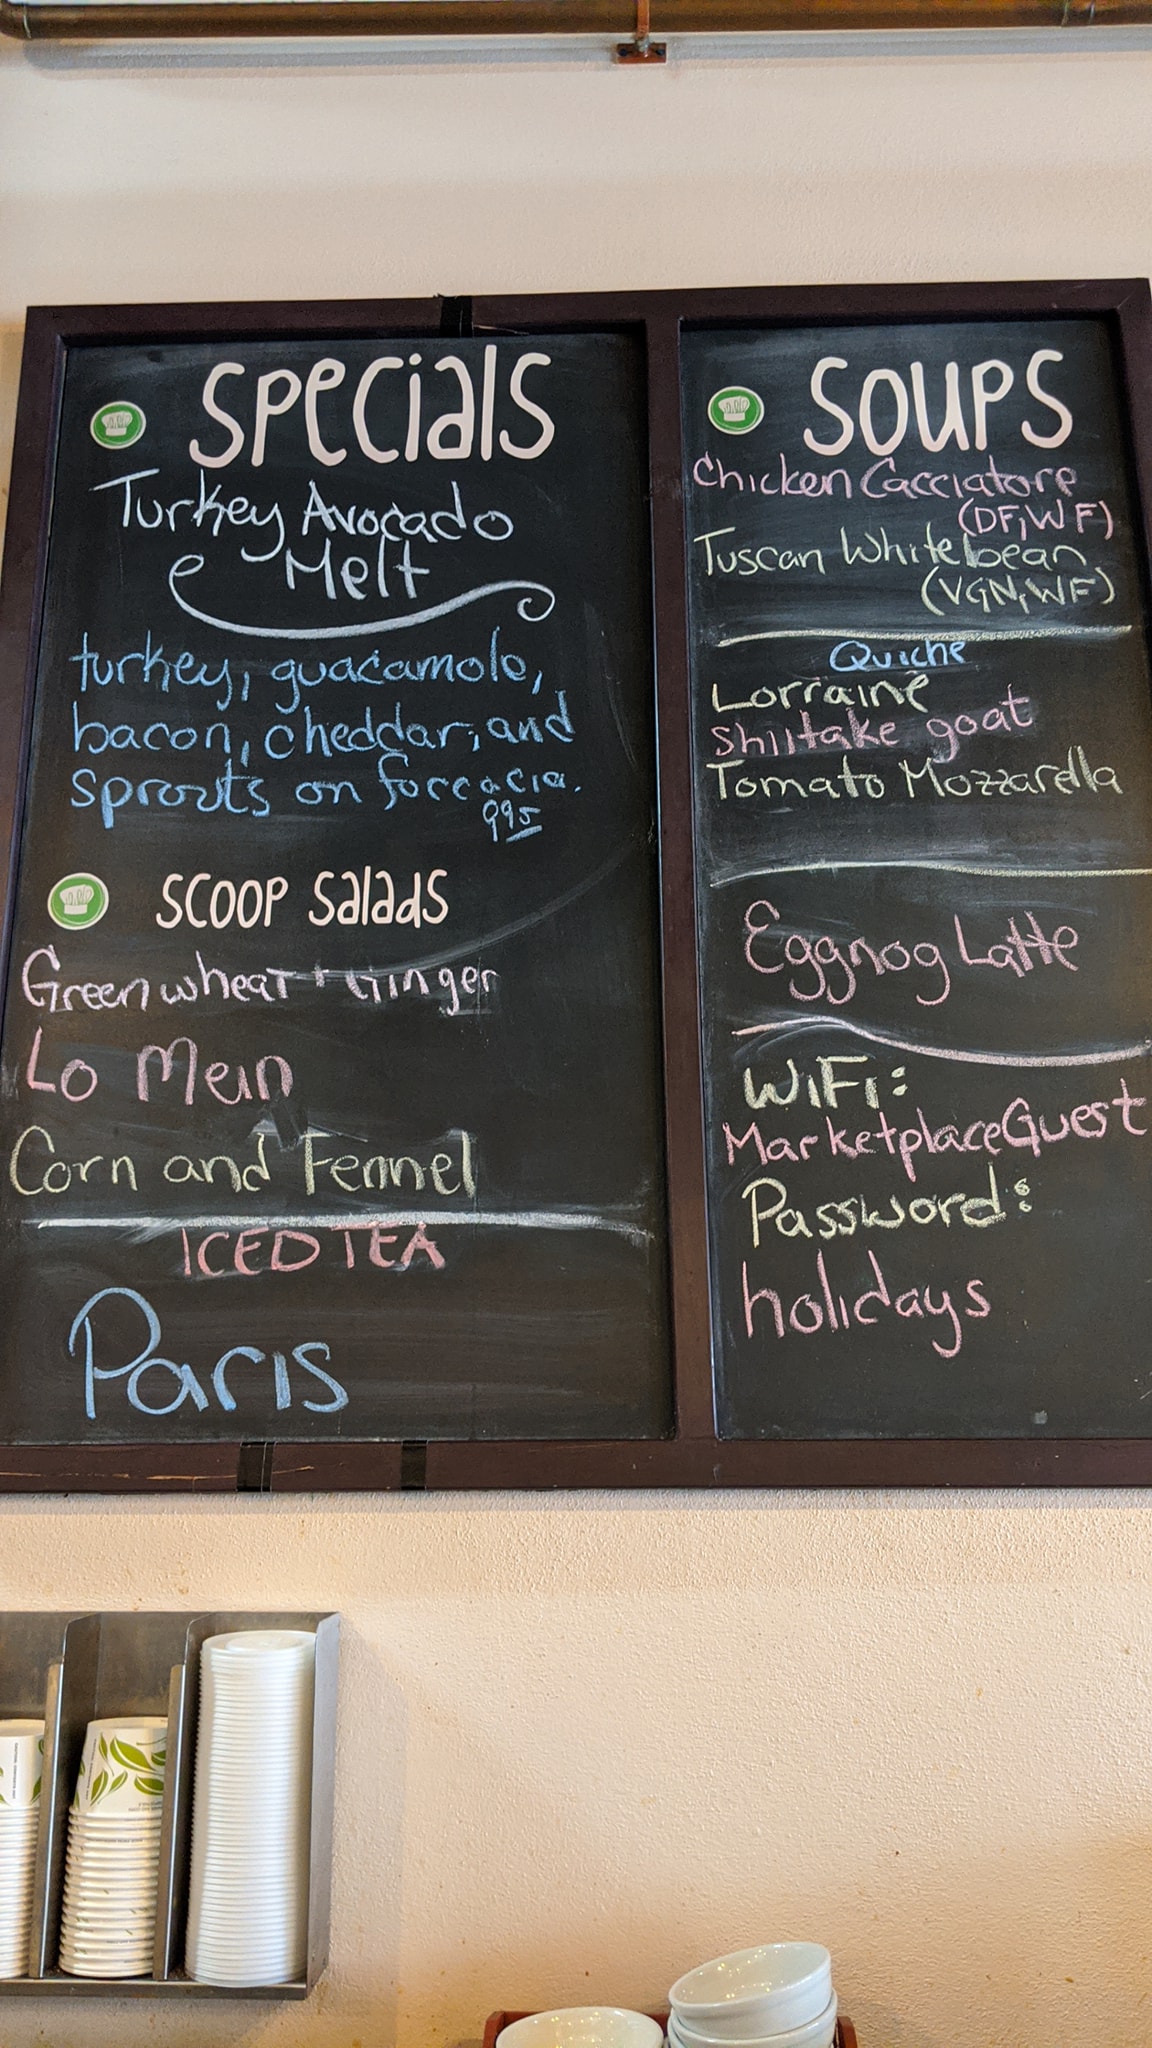 Specials
Turkey Avocado
Melt
turkey, guacamole,
bacon, cheddar, and
sprouts on foccacia.
995
Scoop Salads
Greenwheat + Ginger
Lo Mein
Corn and Fennel
ICED TEA
Paris
Soups
Chicken Cacciatore
(DF, WF)
Tuscan White bean
(VGN, WF)
Quiche
Lorraine
shiitake goat
Tomato Mozzarella
Eggnog Latte
WiFi:
MarketplaceGuest
Password:
holidays